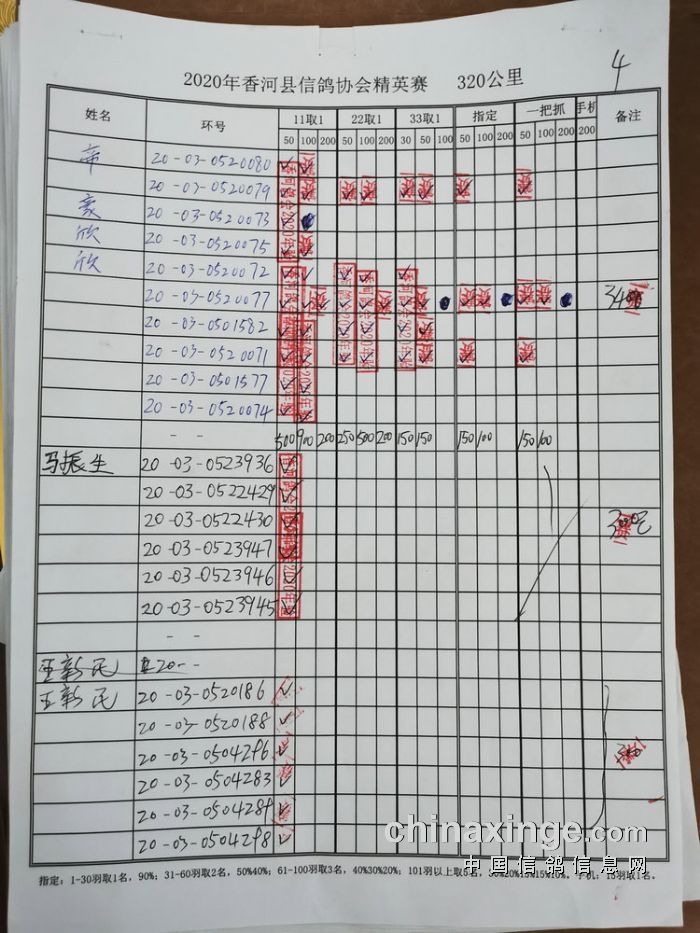 4
2020年香河县信鸽协会精英赛 320公里
姓名 环号 11取1 22取1 33取1 指定 一把抓 手机 备注
50 100 200 50 100 200 30 50 100 50 100 200 50 100 200 200
帝 20-03-0520080
20-03-0520079
豪 20-03-0520073
欣 20-03-0520075
欣 20-03-0520072
20-03-0520077
20-03-0501582
20-03-0520071
20-03-0501577
20-03-0520074
- - 500 900 200 250 500 200 150 150 150 100 150 100
马振生 20-03-0523936
20-03-0522429
20-03-0522430
20-03-0523947
20-03-0523946
20-03-0523945
- -
王新民 20--
王新民 20-03-0520186
20-03-0520188
20-03-0504286
20-03-0504283
20-03-050428
20-03-0504288
chinaxinge.com
中国信鸽信息网
指定：1-30羽取1名，90%；31-60羽取2名，50%40%；61-100羽取3名，40%30%20%；101羽以上取5名，30%20%15%15%10%。手机：15羽取1名。